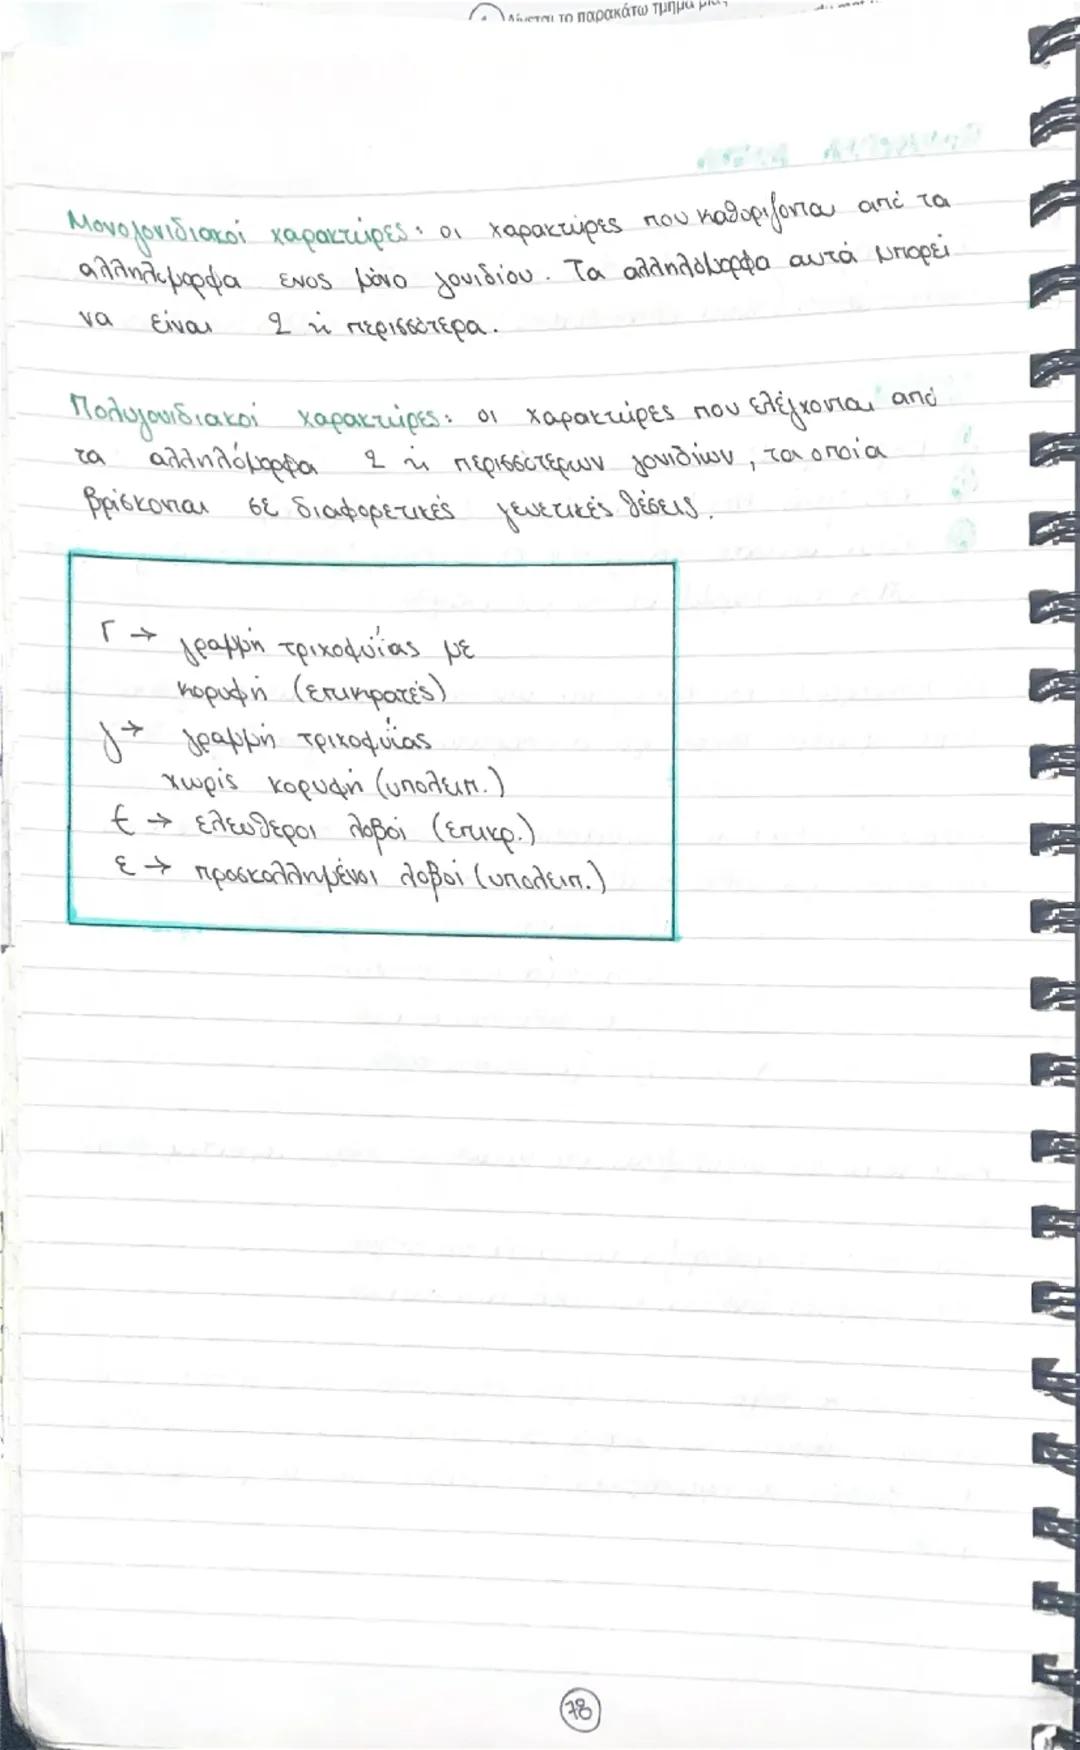 Δίνεται το παρακάτω τμήμα
Μονογονιδιακοί χαρακτήρες: οι χαρακτήρες που καθορίζονται από τα
αλληλόμορφα ενός μόνο γονιδίου. Τα αλληλόμορφα αυτά μπορεί
να είναι 2 ή περισσότερα.
Πολυγονιδιακοί χαρακτήρες: οι χαρακτήρες που ελέγχονται από
τα αλληλόμορφα 2 ή περισσότερων γονιδίων, τα οποία
βρίσκονται σε διαφορετικές γενετικές θέσεις.
Γ → γραμμή τριχοφυΐας με
κορυφή (επικρατές)
γ → γραμμή τριχοφυΐας
χωρίς κορυφή (υπολειπ.)
Ε → ελεύθεροι λοβοί (επικρ.)
ε → προσκολλημένοι λοβοί (υπολειπ.)
78